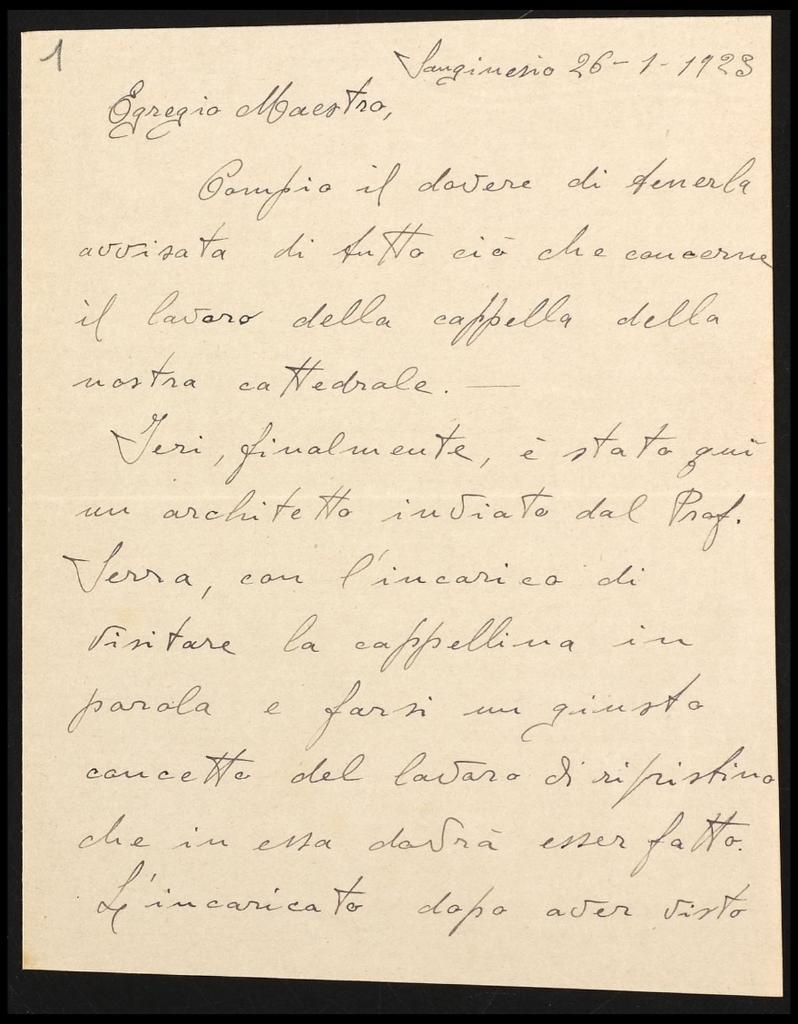 1
Sanginesio 26-1-1923
Egregio Maestro,
Compio il dovere di tenerla
avvisata di tutto ciò che concerne
il lavoro della cappella della
nostra cattedrale. —
Ieri, finalmente, è stato quì
un architetto inviato dal Prof.
Serra, con l'incarico di
visitare la cappellina in
parola e farsi un giusto
concetto del lavoro di ripristino
che in essa dovrà esser fatto.
L'incaricato dopo aver visto